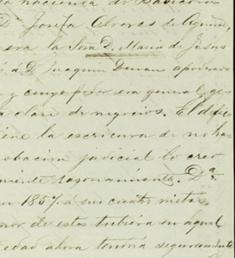 la hacienda de
Da Josefa Alvares de
era la Sra. Da. Maria de Jesus
á D. Joaquin Duran apoderado
y cuyo poder era general
clase de negocios. El
tiene la escritura de no ha
probacion judicial lo creo
mente razonamiento. Da.
en 1857 a sus cuatro nietos
nor de estos tubiera en aquel
edad ahora tendria seguramente